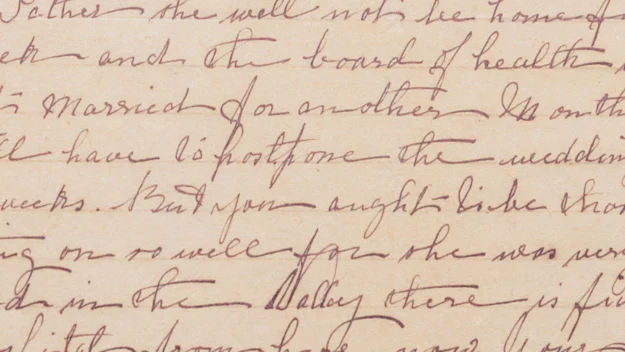 Father she well not be home f
and the board of health
married for another Month
have to postpone the weddin
weeks. But you aught to be than
ing on so well for she was ver
in the Valley there is fi
from here now your